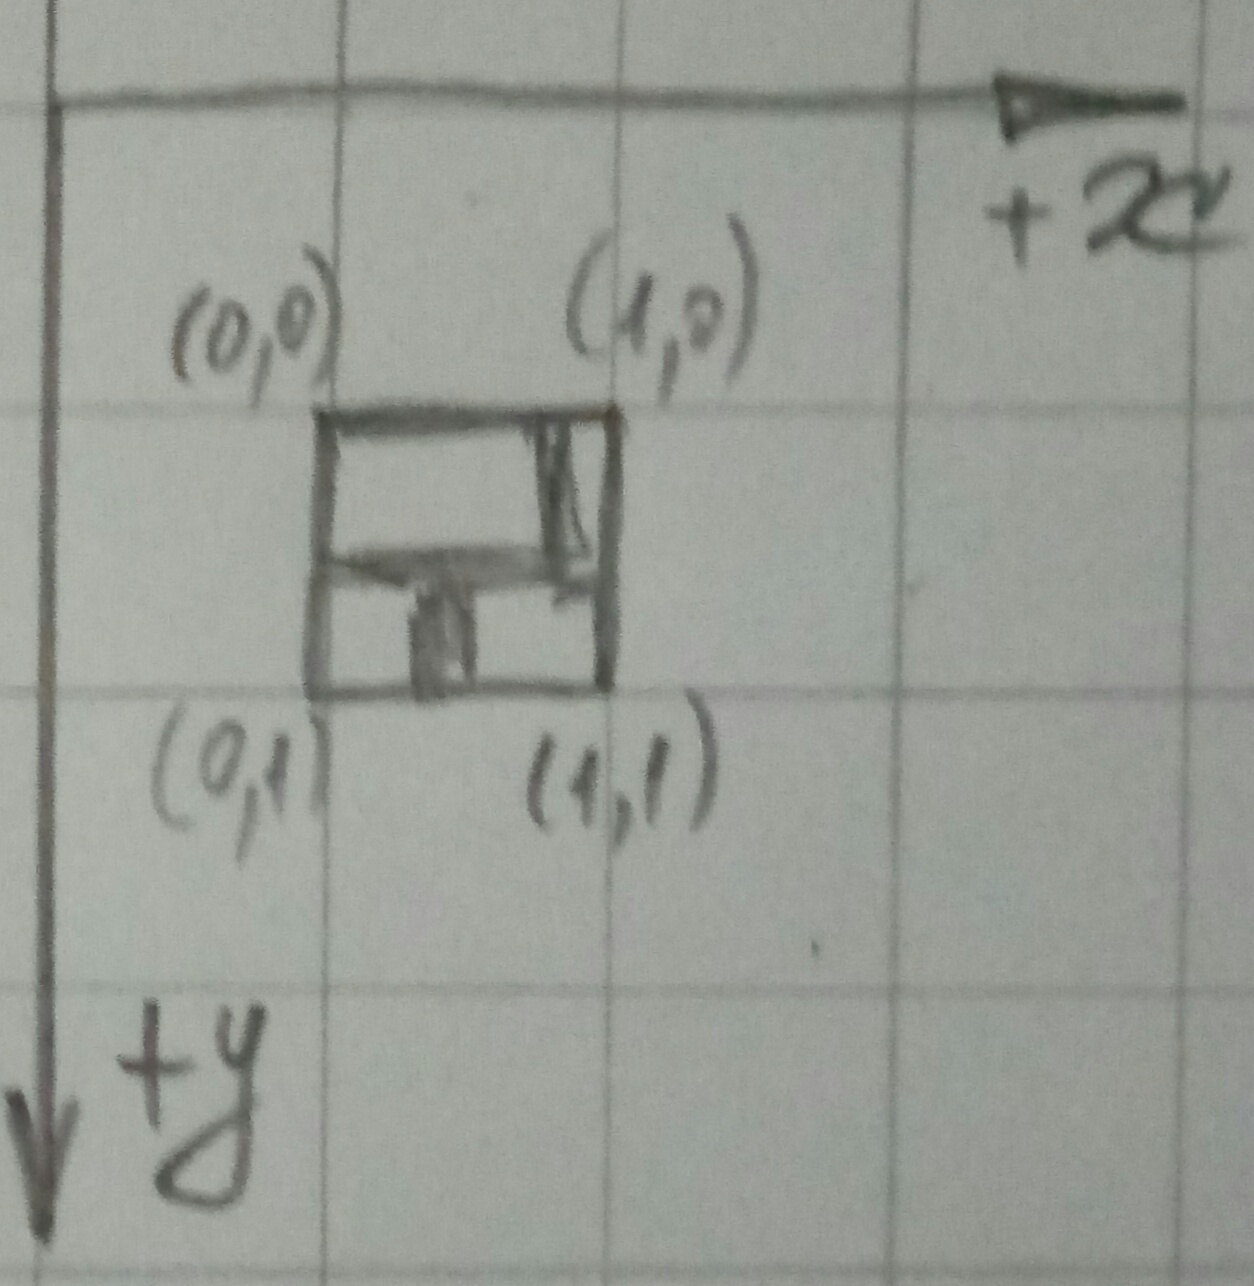 +x
(0,0) (1,0)
(0,1) (1,1)
+y